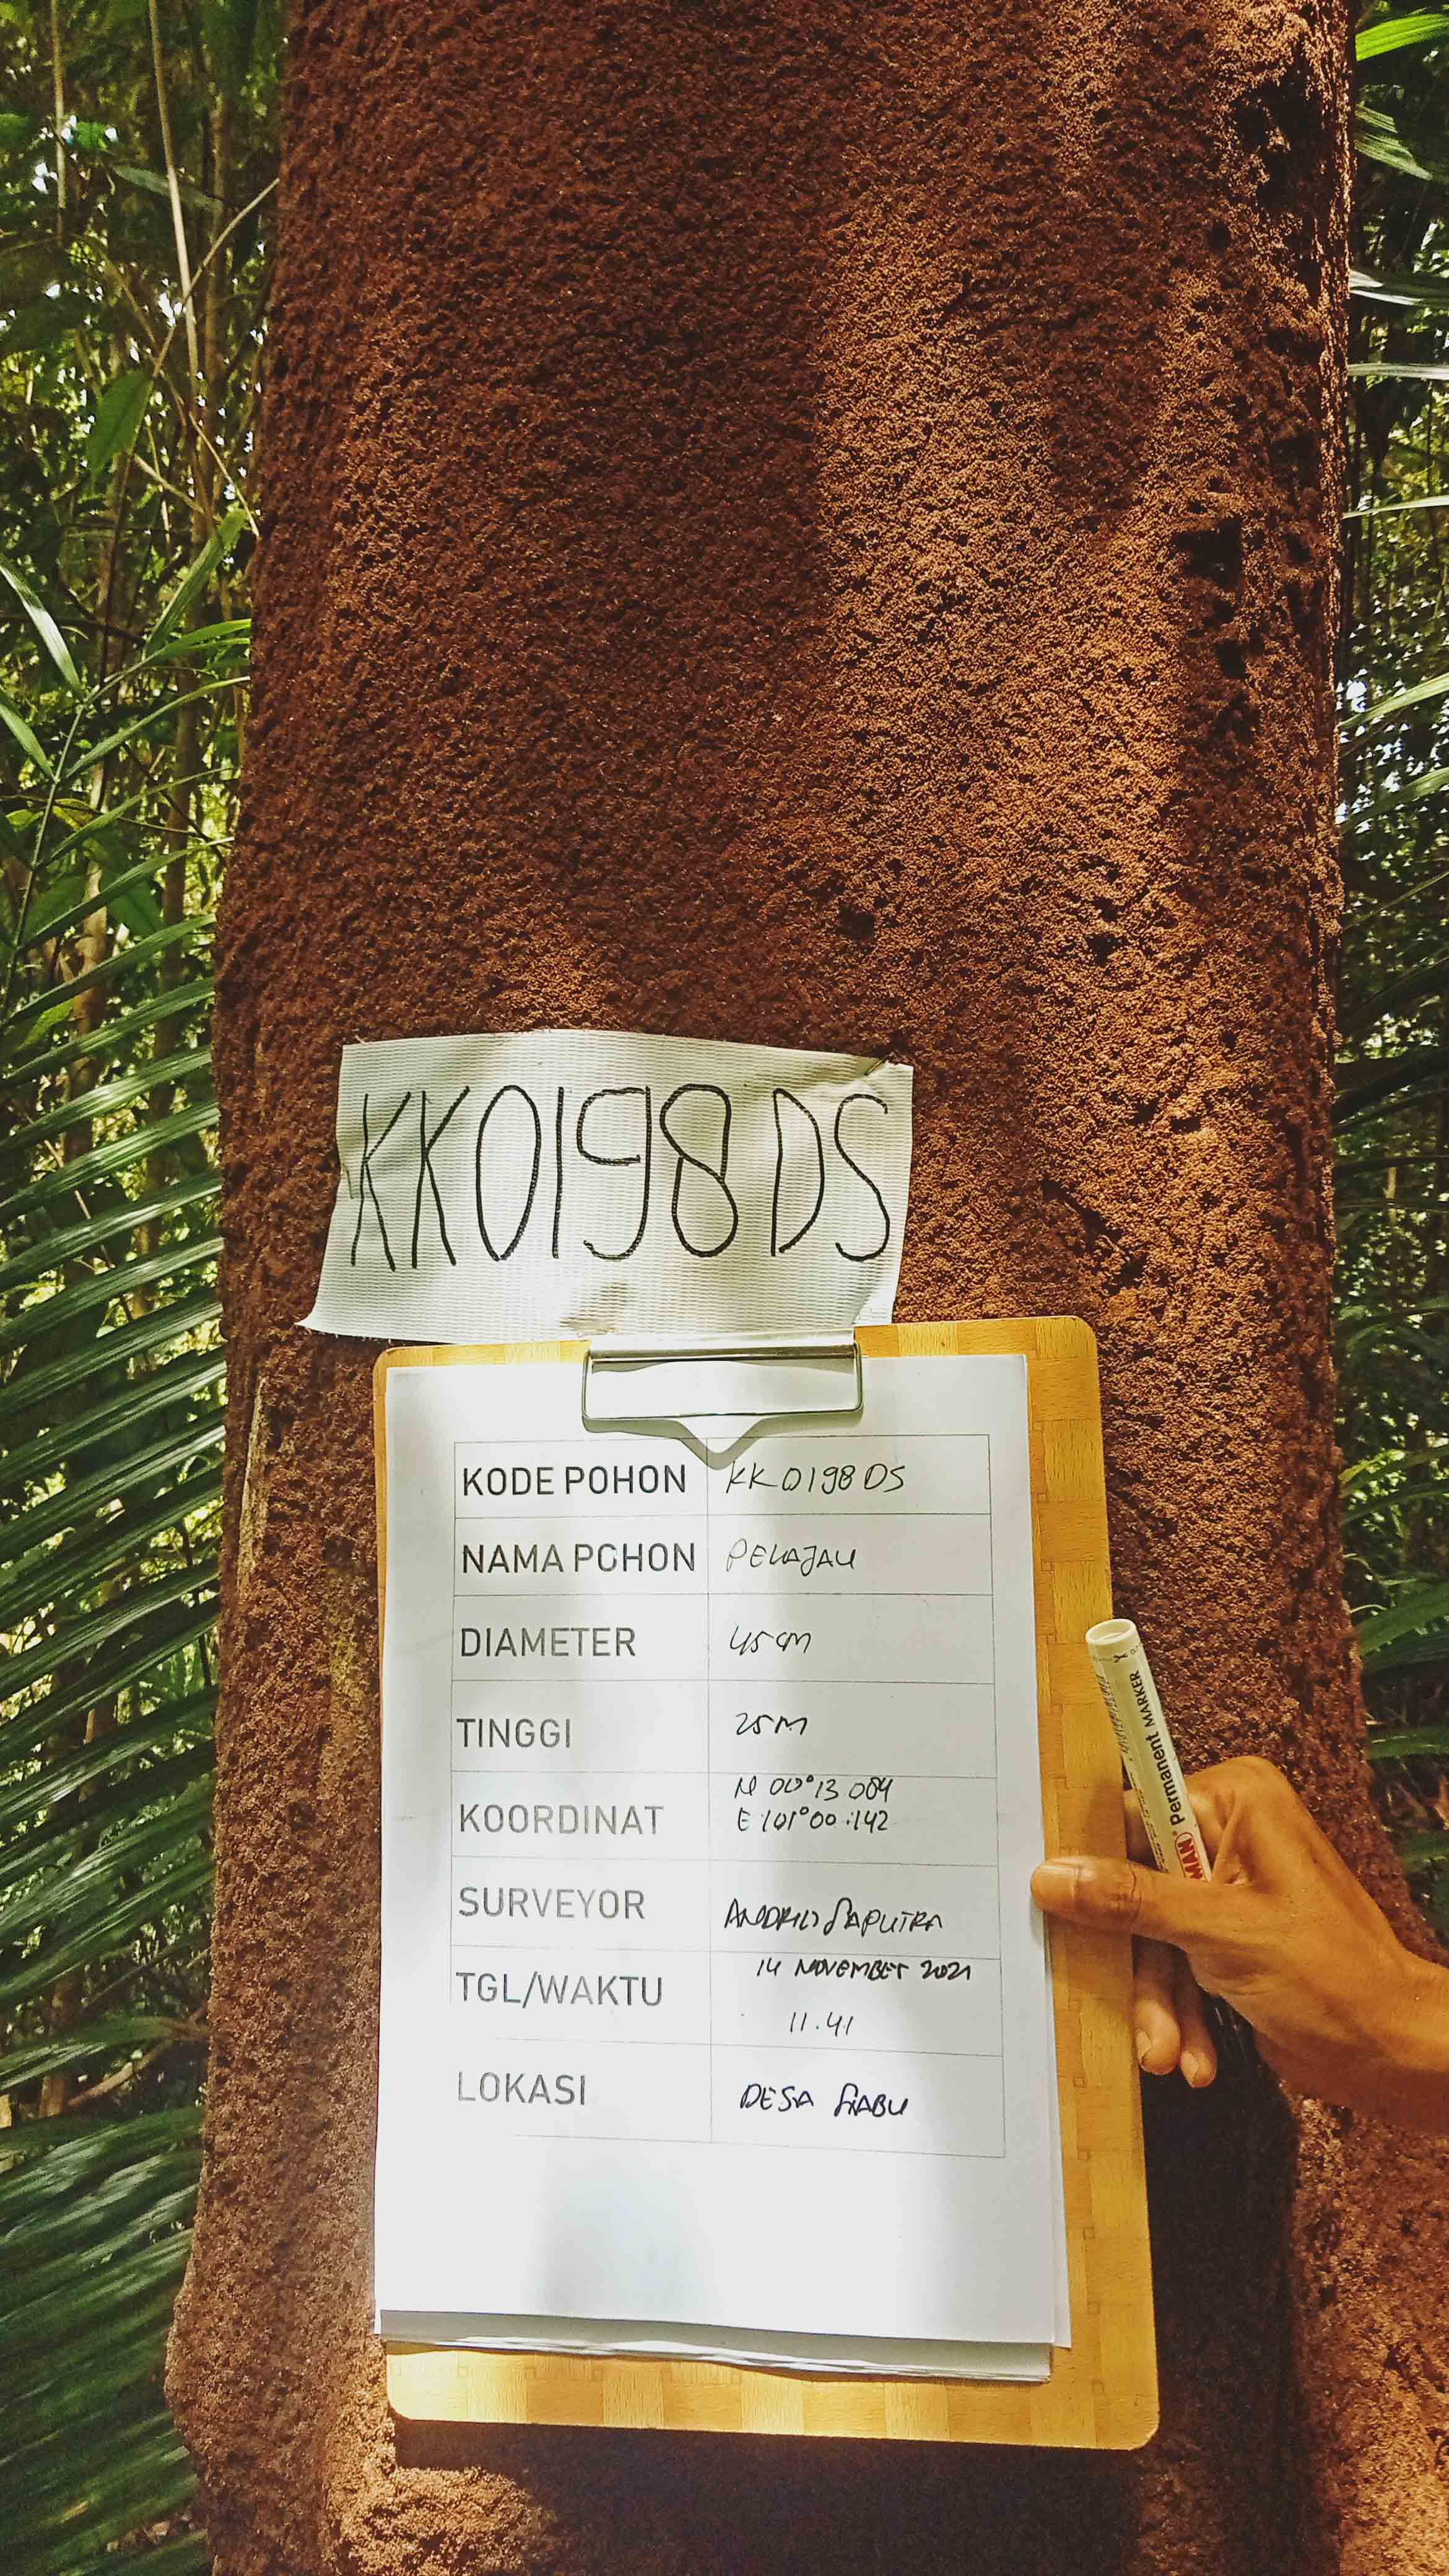 KK0198DS
KODE POHON KK0198DS
NAMA POHON PELAJAU
DIAMETER 45cm
TINGGI 25M
KOORDINAT N 00°13 084
E:101°00:142
SURVEYOR SAPUTRA
TGL/WAKTU 14 NOVEMBER 2021
11.41
LOKASI DESA SIABU
Permanent MARKER